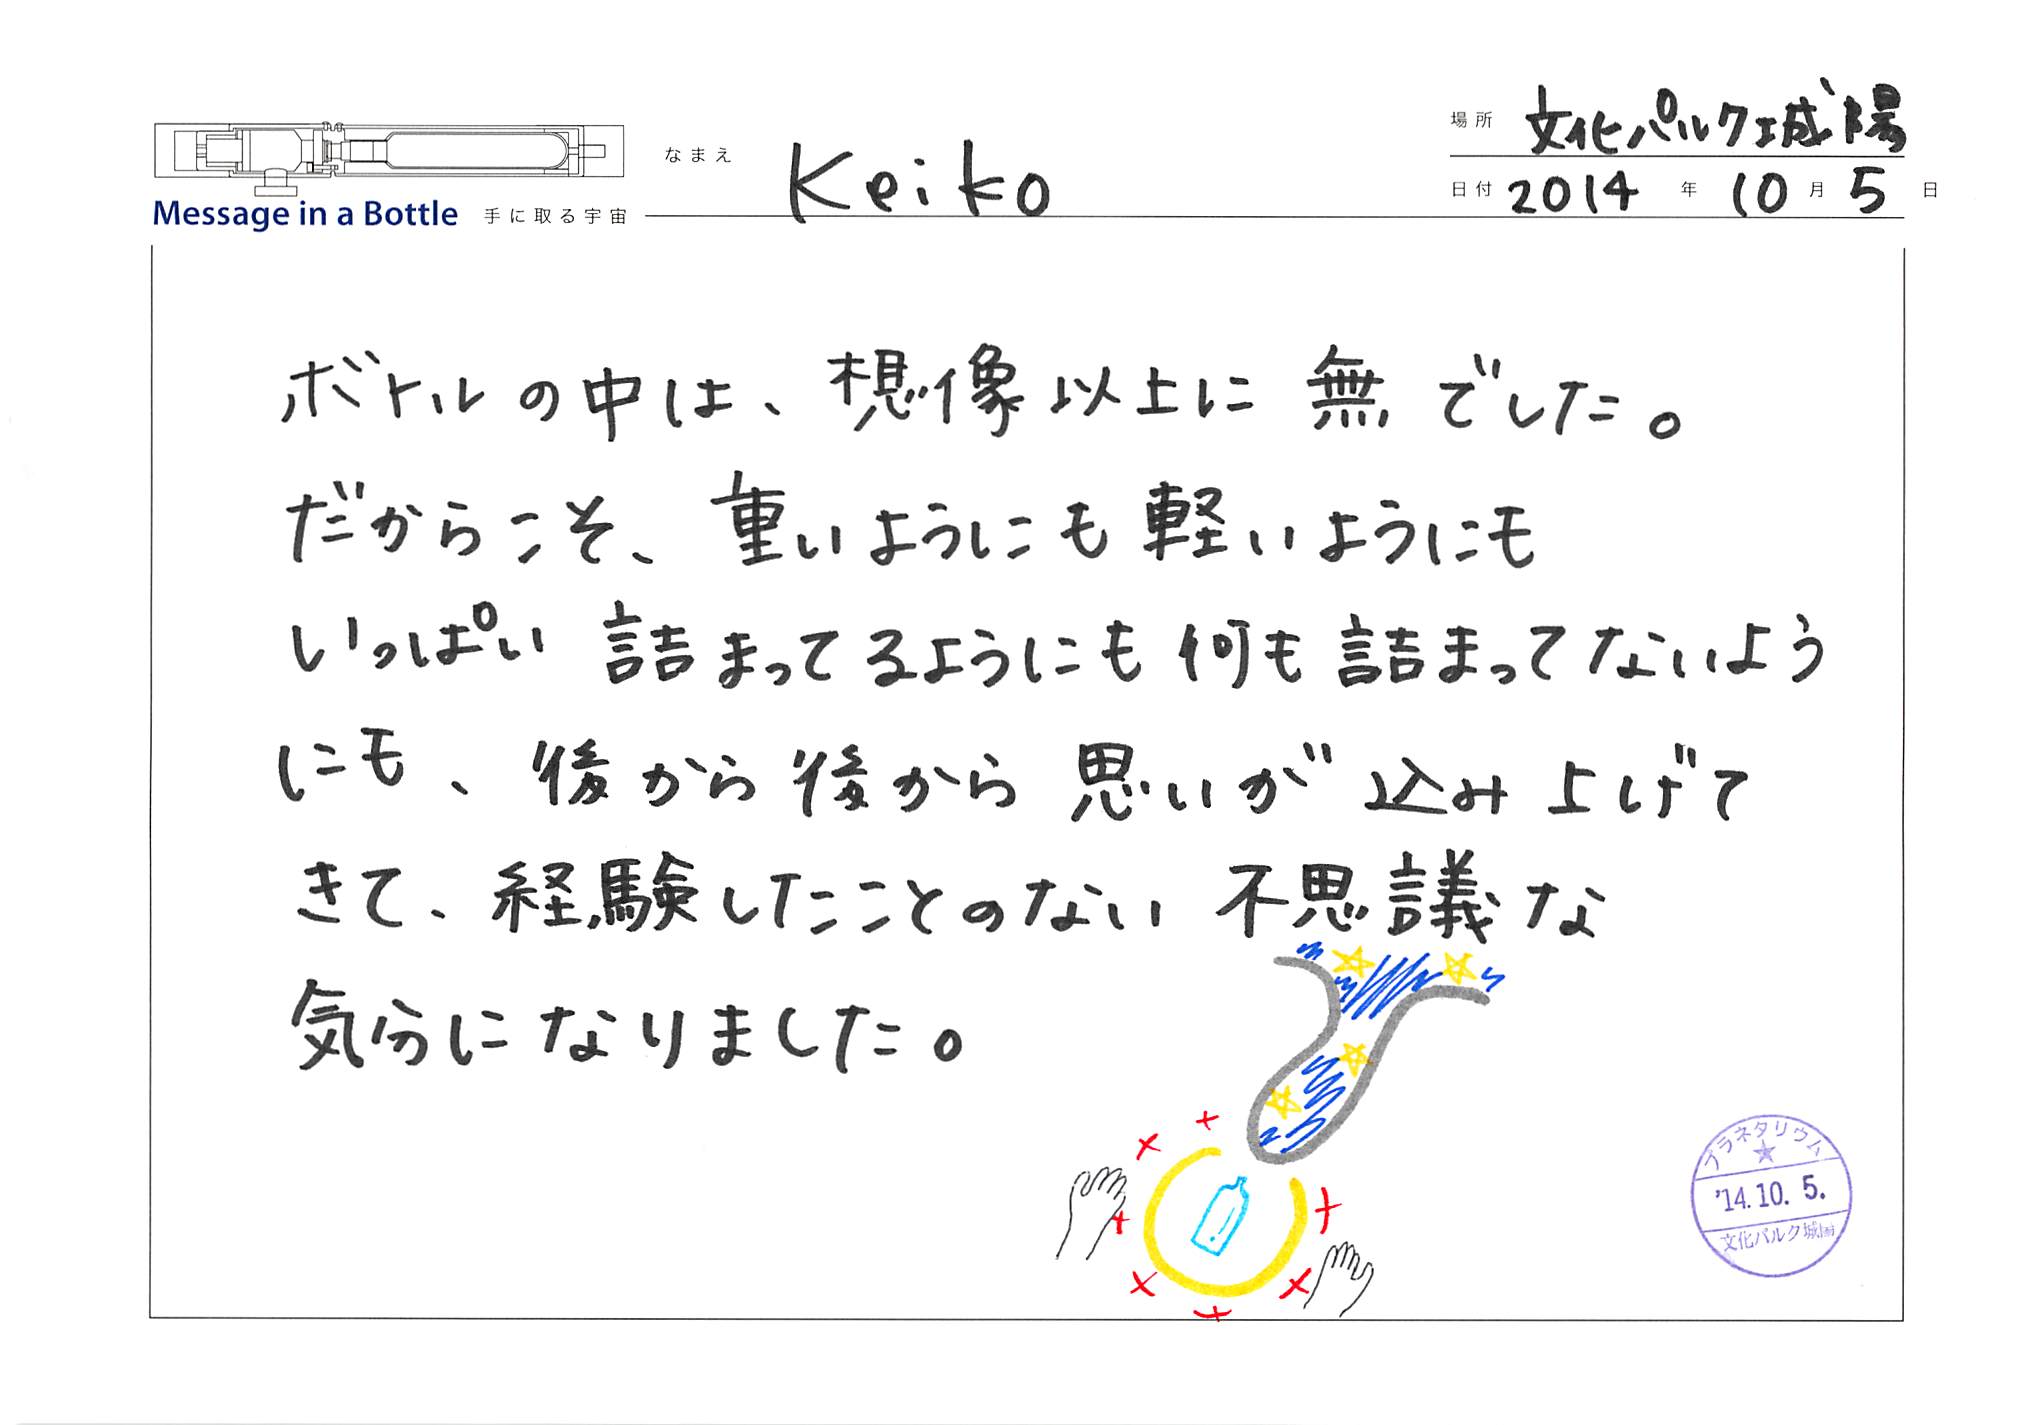 Message in a Bottle 手に取る宇宙
なまえ Keiko
場所 文化パルク城陽
日付 2014 年 10 月 5 日
ボトルの中は、想像以上に 無 でした。
だからこそ、重いようにも軽いようにも
いっぱい 詰まってるようにも何も詰まってないよう
にも、後から後から思いが込み上げて
きて、経験したことのない 不思議な
気分になりました。
プラネタリウム
'14.10.5.
文化パルク城陽